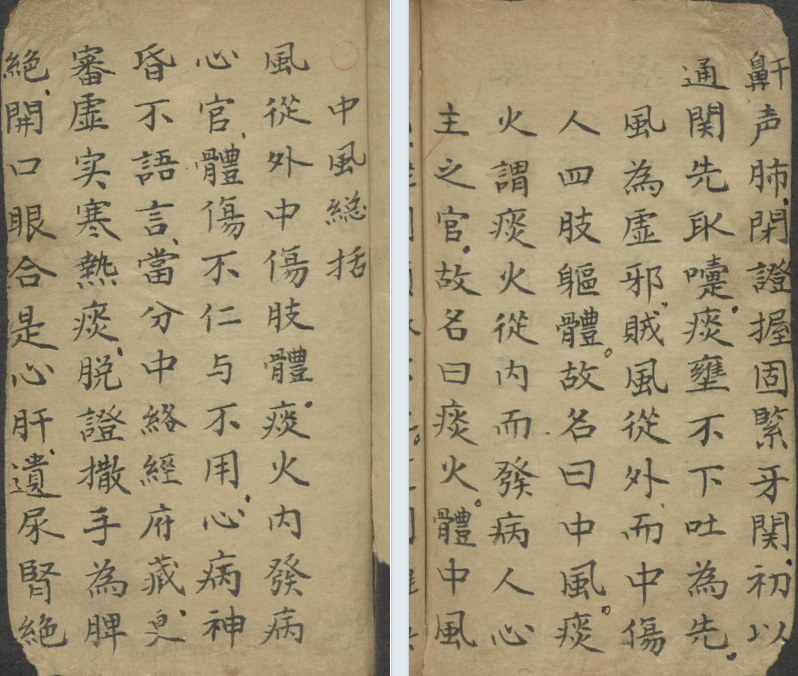 中風総括
風從外中傷肢體。痰火内發病
心官、體傷不仁与不用、心病神
昏不語言、當分中絡經府藏、更
審虛实寒熱痰、脱證撒手為脾
絶、開口眼合是心肝、遺尿腎絶
鼾声肺、閉證握固緊牙関、初以
通関先取嚏。痰壅不下吐為先。
風為虛邪、賊風從外、而中傷
人四肢軀體。故名曰中風。痰
火謂痰火從内而發病人心
主之官。故名曰痰火。體中風